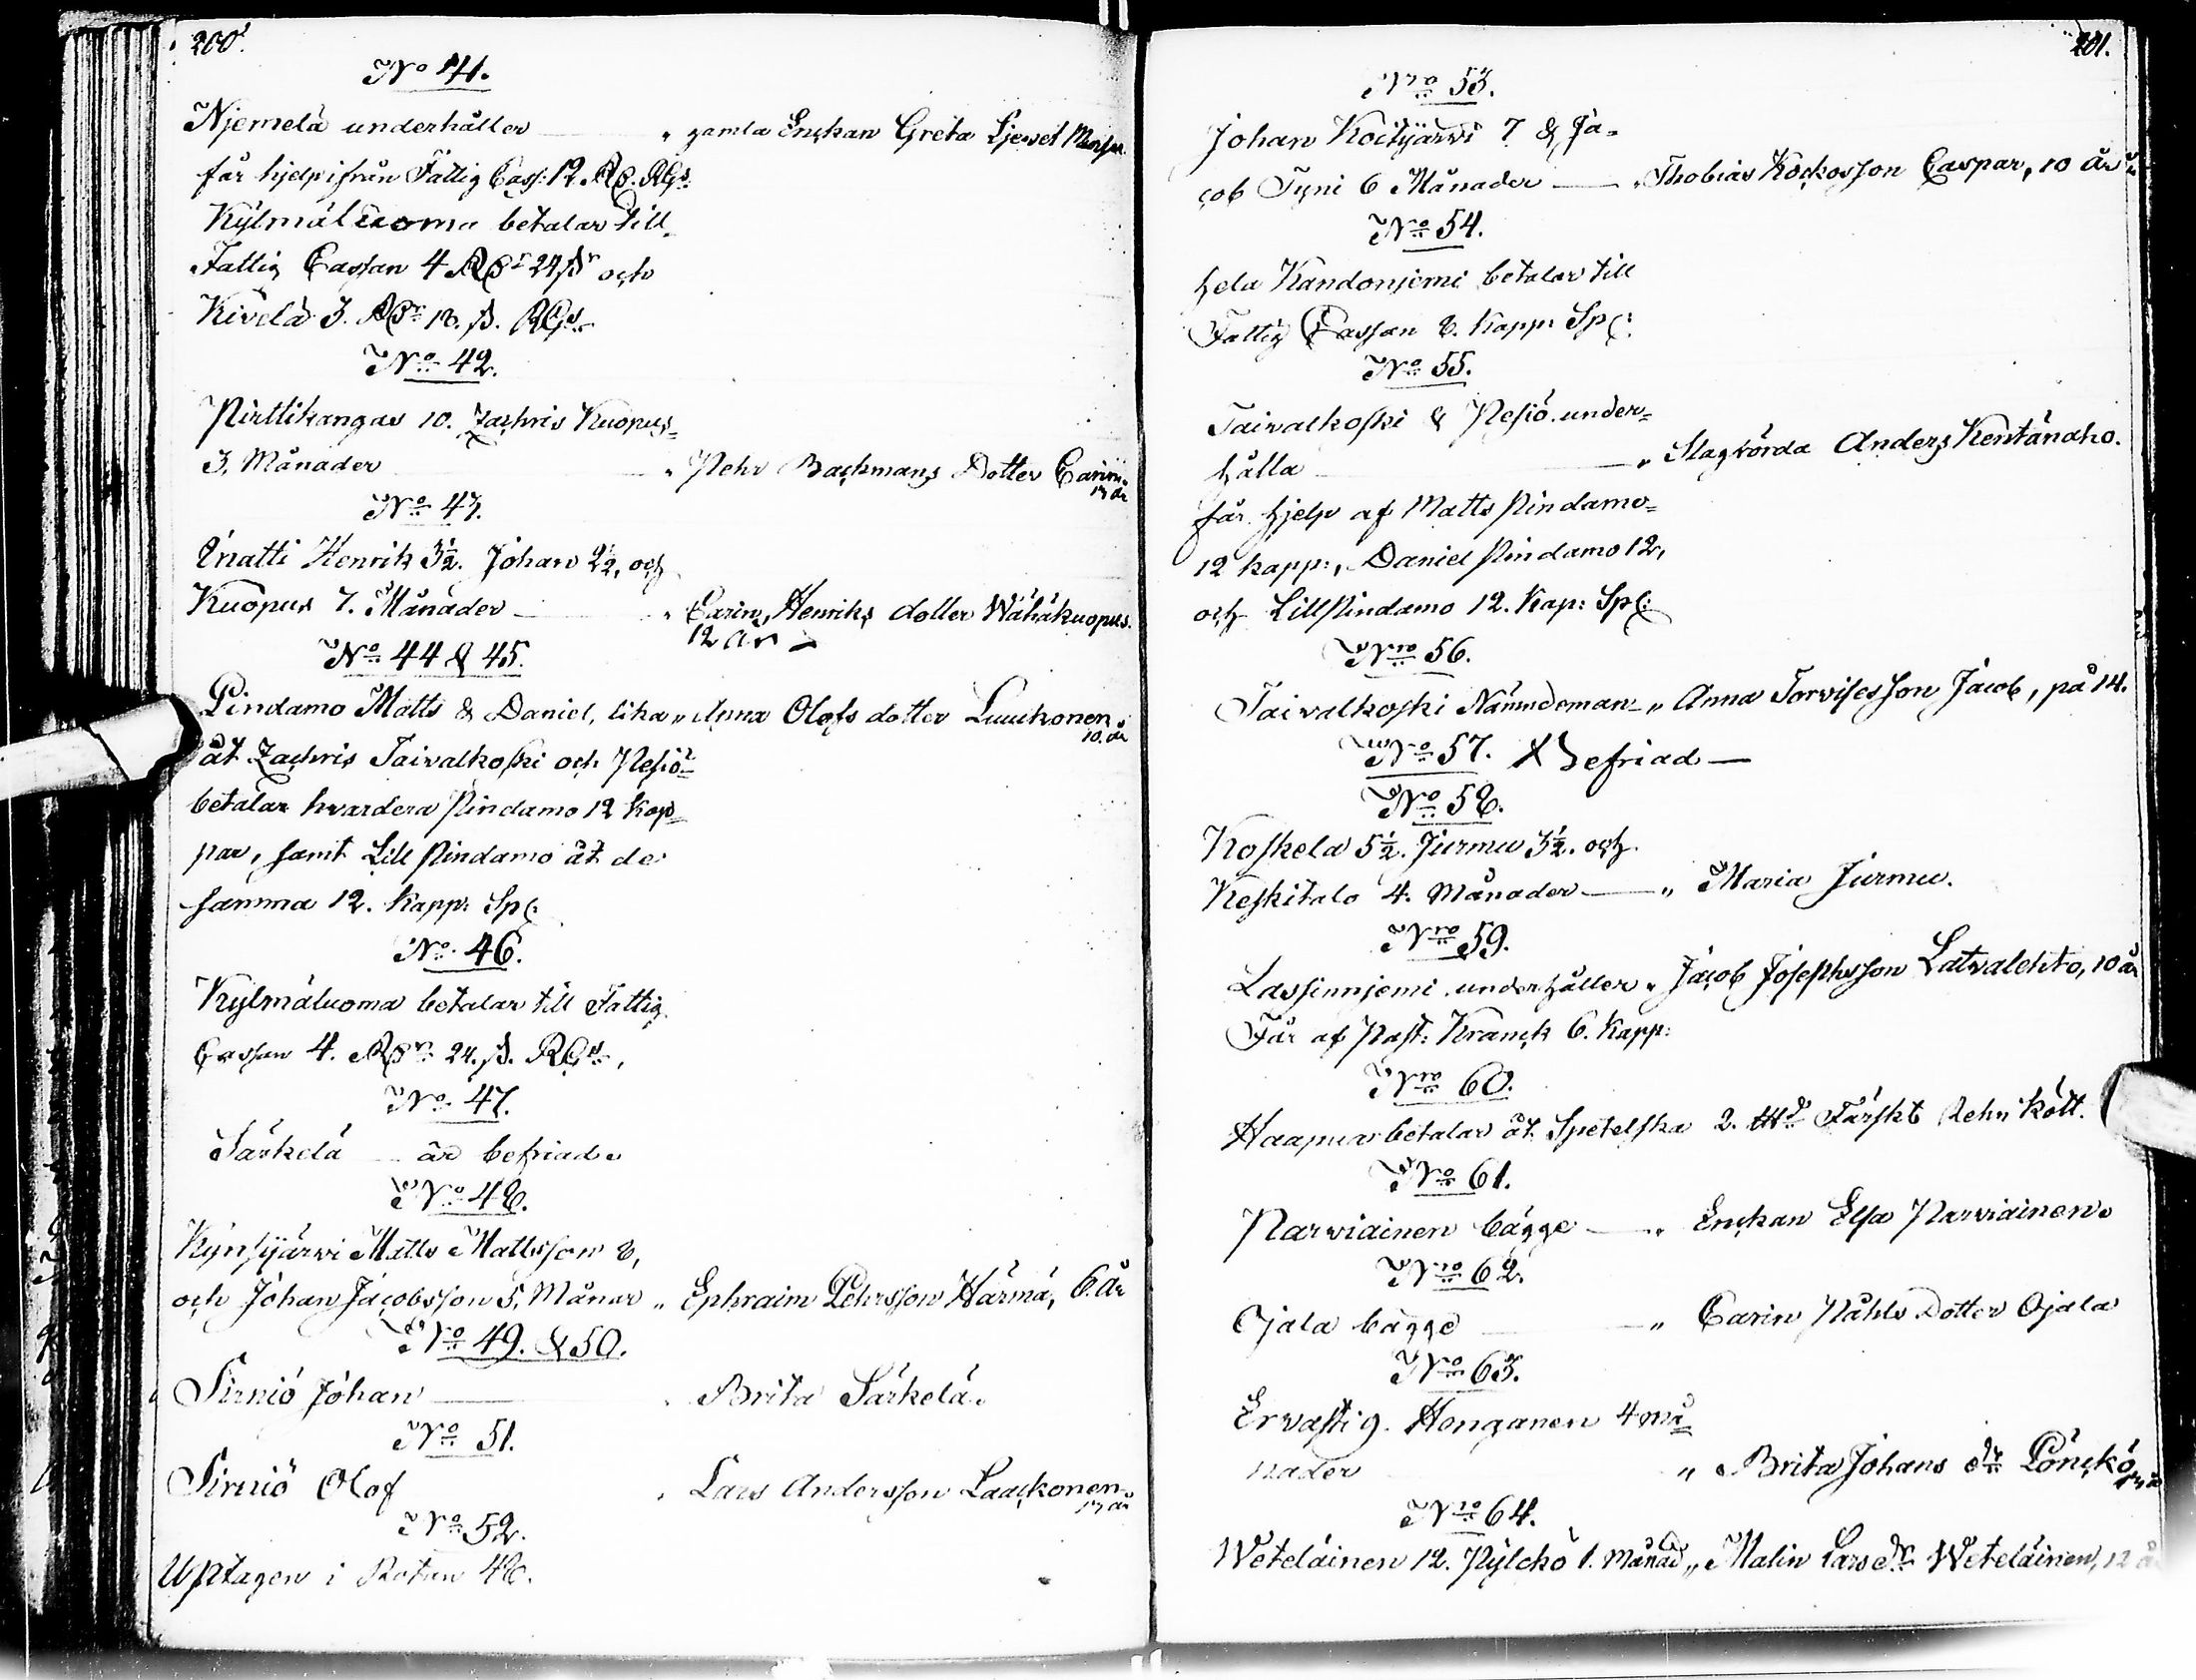 200.
No 41.
Njemelä underhåller — " gamla Enckan Greta Ljevet
får hjelp ifrån Fattig Cass: 12. Rd. RGs.
Kylmäluoma betalar till
Fattig Cassan 4 Rdr 24 s och
Kivelä 3. Rdr 18. s. RGs.
No 42.
Pirttikangas 10. Zachris Kuopus
3. Månader — " Pehr Backmans Dotter Carin
13 år
No 43.
Önatti Henrik 3½. Johan 2½, och
Kuopus 7. Månader — " Carin Henriks dotter Wähäkuopus.
12 År
No 44 & 45.
Pindamo Matts & Daniel, lika " Anna Olofs dotter Luukonen
10. år
åt Zachris Taivalkoski och Pesiö
betalar hvardera Pindamo 12 kap-
par, samt Lill Pindamo åt de
samma 12. Kapp: Sp:
No 46.
Kylmäluoma betalar till Fattig
Cassan 4. Rdr 24. s. RGs.
No 47.
Särkelä är befriad.
No 48.
Kynsijärvi Matts Mattsson 8,
och Johan Jacobsson 5, Månar " Ephraim Pehrsson Härmä, 6. År
No 49. & 50.
Sirniö Johan — " Brita Särkelä.
No 51.
Sirniö Olof " Lars Andersson Laackonen
13 år
No 52.
Uptagen i Rotan 48.
201.
No 53.
Johan Koitijärvi 7 & Ja=
cob Tyni 6 Månader — " Thobias Kockosson Caspar, 10 år
No 54.
hela Kandonjemi betalar till
Fattig Cassan 8. Kapp: Sp:
No 55.
Taivalkoski & Pesiö under=
hålla — " Slagrörda Anders Kentänaho.
får hjelp af Matts Pindamo=
12 kapp:, Daniel Pindamo 12,
och Lill Pindamo 12. Kap: Sp:
Nro 56.
Taivalkoski Nämndeman " Anna Torvisesson Jacob, på 14.
No 57. X befriad —
No 58.
Koskela 5½. Jurmu 3½. och
Keskitalo 4. Månader — " Maria Jurmu.
Nro 59.
Lassinnjemi underhåller " Jacob Josephsson Latvalehto, 10 år
Får af Past: Kranck 6. Kapp:
Nro 60.
Haapua betalar åt Spetelska 2. Färskt Rehn Kött.
No 61.
Parviainen bägge — " Enckan Elsa Parviainen
No 62.
Ojala bägge — " Carin Påhls Dotter Ojala
No 63.
Ervasti 9. Honganen 4 må
nader " Brita Johans dr Pönckö
No 64.
Weteläinen 12. Pylckö 1. Månad " Malin Lars dr Weteläinen, 12 år